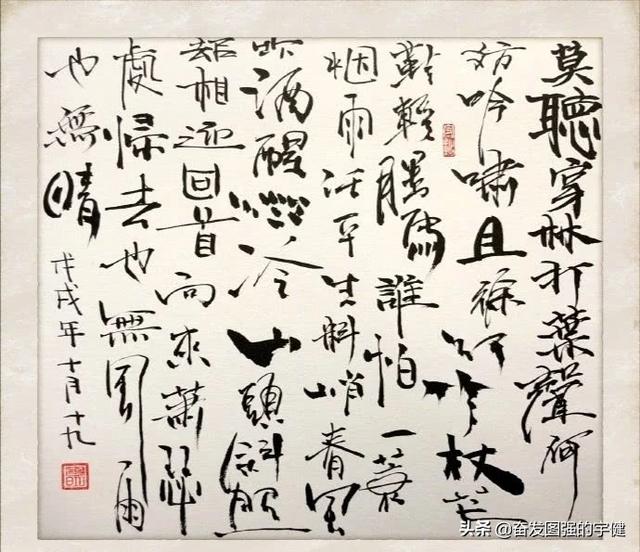 莫聽穿林打葉聲何
妨吟嘯且徐行竹杖芒
鞋輕勝馬誰怕一蓑
烟雨任平生料峭春風
吹酒醒微冷山頭斜照
卻相迎回首向來蕭瑟
處歸去也無風雨
也無晴
戊戌年十月十九
头条 @奋发图强的宇健